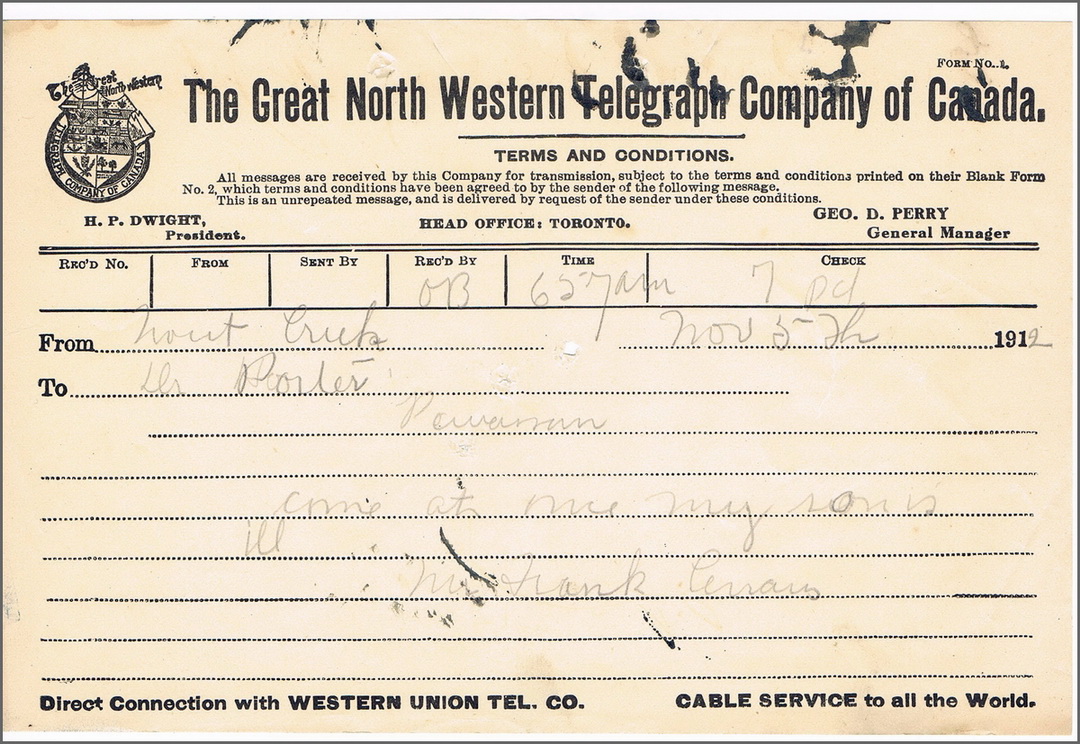 The Great North Western
TELEGRAPH COMPANY OF CANADA
FORM NO. 1.
The Great North Western Telegraph Company of Canada.
TERMS AND CONDITIONS.
All messages are received by this Company for transmission, subject to the terms and conditions printed on their Blank Form
No. 2, which terms and conditions have been agreed to by the sender of the following message.
This is an unrepeated message, and is delivered by request of the sender under these conditions.
H. P. DWIGHT,
President.
HEAD OFFICE: TORONTO.
GEO. D. PERRY
General Manager
REC'D NO. FROM SENT BY REC'D BY TIME CHECK
OB 657am 7 pd
From Trout Creek Nov 5th 1912
To Dr Porter
Powassan
come at once my son is
ill
Mrs Frank
Direct Connection with WESTERN UNION TEL. CO. CABLE SERVICE to all the World.